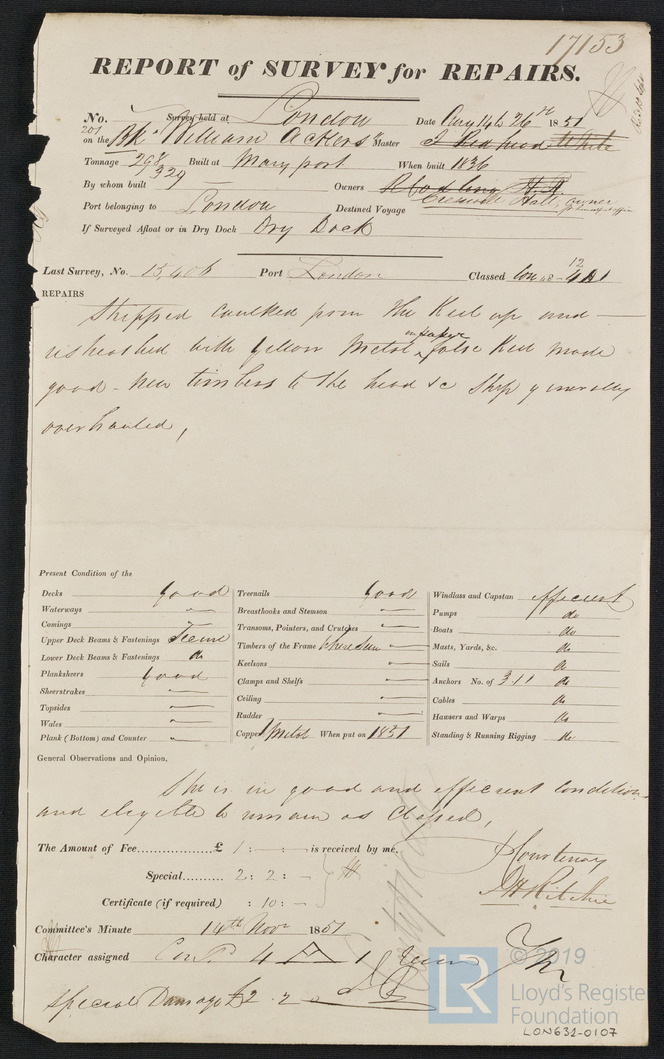 17153
REPORT of SURVEY for REPAIRS.
No. Survey held at London Date Augt 14th 26th 1851
201 on the Bk "William Ackers" Master J Redhead White
Tonnage 298 / 329 Built at Maryport When built 1836
By whom built Owners H. A.
Port belonging to London Destined Voyage Hall, owner
If Surveyed Afloat or in Dry Dock Dry Dock
Last Survey, No. 15,406 Port London Classed Lon 48 - 12 A1
REPAIRS
Stripped caulked from the Keel up and
resheathed with yellow Metal on paper false Keel made
good - New timbers to the head &c Ship generally
overhauled,
Present Condition of the
Decks good
Waterways "
Comings "
Upper Deck Beams & Fastenings Secure
Lower Deck Beams & Fastenings do
Planksheers good
Sheerstrakes "
Topsides "
Wales "
Plank (Bottom) and Counter "
Treenails good
Breasthooks and Stemson "
Transoms, Pointers, and Crutches "
Timbers of the Frame where seen "
Keelsons "
Clamps and Shelfs "
Ceiling "
Rudder "
Copper Y Metal When put on 1851
Windlass and Capstan efficient
Pumps do
Boats do
Masts, Yards, &c. do
Sails do
Anchors No. of 3.1.1 do
Cables do
Hawsers and Warps do
Standing & Running Rigging do
General Observations and Opinion,
She is in good and efficient condition
and eligible to remain as Classed,
The Amount of Fee £ 1 : - : - is received by me,
Special 2 : 2 : -
Certificate (if required) : 10 : -
Courtenay
J H Ritchie
Certificate
Committee's Minute 14th Novr 1851
Character assigned Cont 4 A 1
Special Damage £2.2.0
© 2019
LR
Lloyd's Register
Foundation
LON631-0107